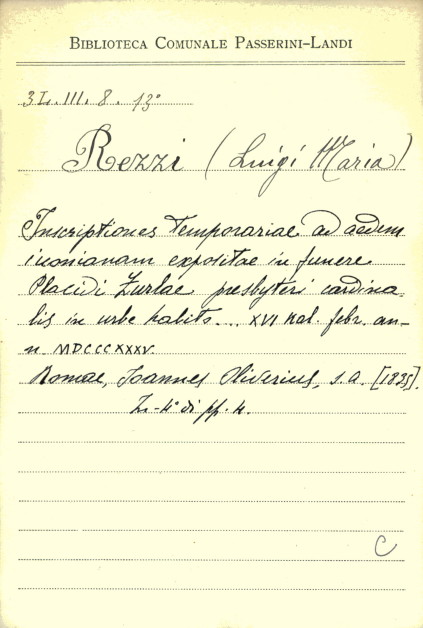 BIBLIOTECA COMUNALE PASSERINI-LANDI
3L.III.8.13°
Rezzi (Luigi Maria)
Inscriptiones temporariae ad aedem
inonianam expositae in funere
Placidi Zurlae presbyteri cardina
lis in urbe habito... XVI kal. febr. an-
n. MDCCCXXXV.
Romae, Joannes Oliverius, s.a. [1835].
In-4° di pp. 4.
C